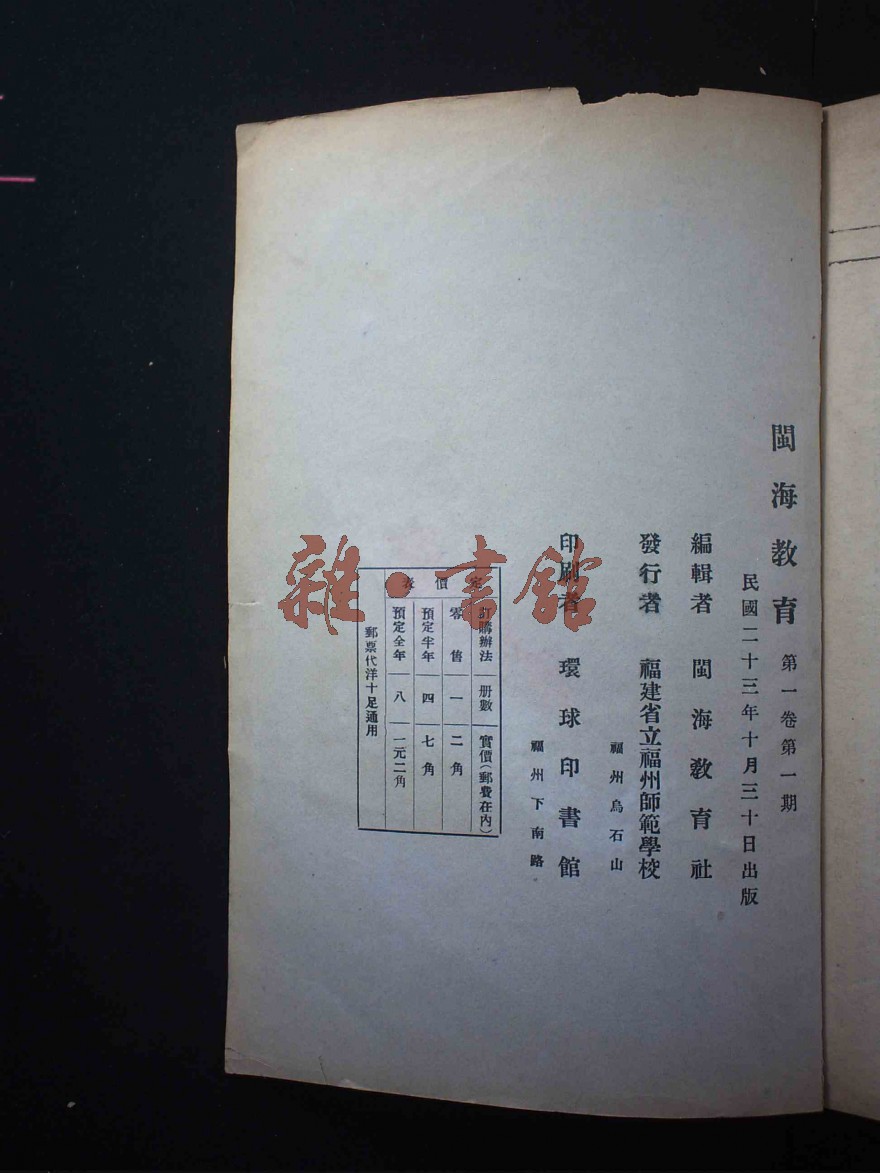 閩海教育 第一卷第一期
民國二十三年十月三十日出版
編輯者 閩海教育社
發行者 福建省立福州師範學校
福州烏石山
印刷者 環球印書館
福州下南路
定價表
訂購辦法 册數 實價(郵費在內)
零售 一 二角
預定半年 四 七角
預定全年 八 一元二角
郵票代洋十足通用
雜·書館